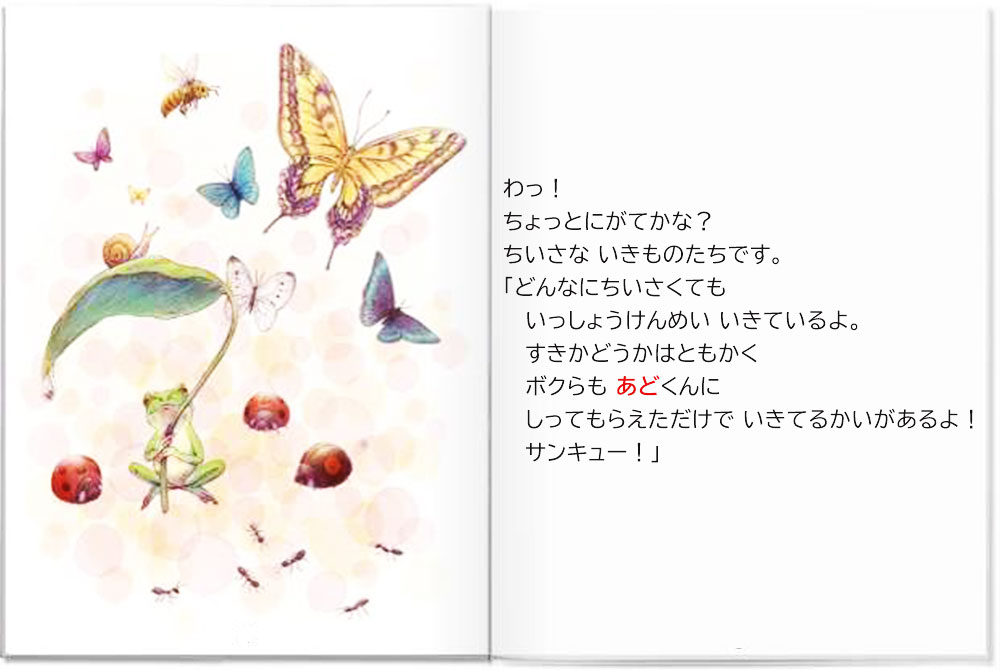 わっ！
ちょっとにがてかな？
ちいさな いきものたちです。
「どんなにちいさくても
いっしょうけんめい いきているよ。
すきかどうかはともかく
ボクらも あどくんに
しってもらえただけで いきてるかいがあるよ！
サンキュー！」